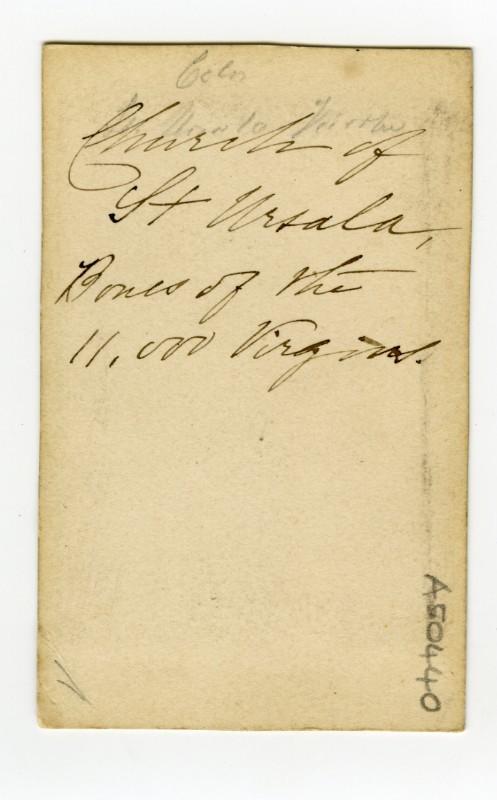 Church of
St Ursala,
Bones of the
11,000 Virgins.
A50440